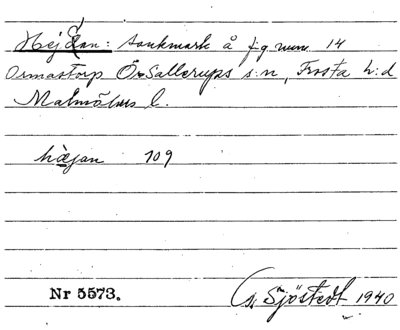 Hejan: sankmark å fig num 14
Ormastorp Ö. Sallerups s:n, Frosta h:d
Malmöhus l.
hæjan 109
Nr 5573.
Sjöstedt 1940